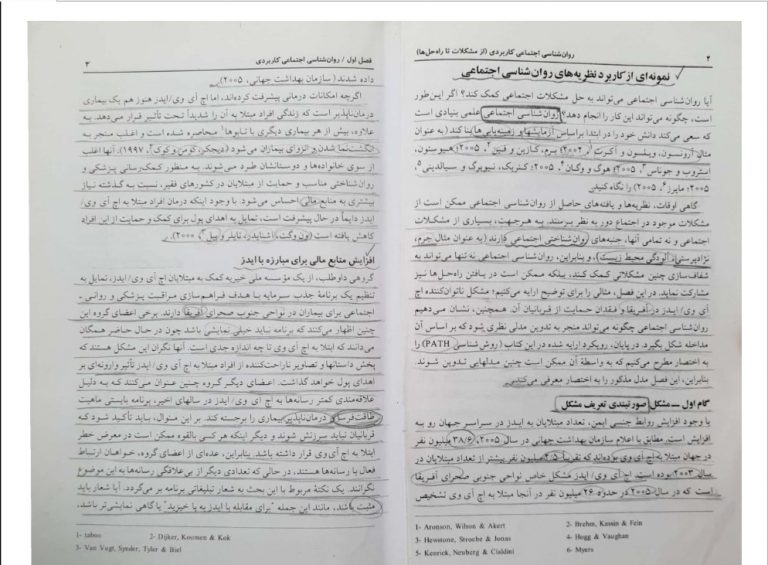 ۲ روان‌شناسی اجتماعی کاربردی (از مشکلات تا راه‌حل‌ها)
نمونه‌ای از کاربرد نظریه‌های روان‌شناسی اجتماعی
آیا روان‌شناسی اجتماعی می‌تواند به حل مشکلات اجتماعی کمک کند؟ اگر این‌طور
است، چگونه می‌تواند این کار را انجام دهد؟ روان‌شناسی اجتماعی علمی بنیادی است
که سعی می‌کند دانش خود را در ابتدا براساس آزمایشها و زمینه‌یابی‌ها بنا کند (به عنوان
مثال آرونسون، ویلسون و آکرت۱، ۲۰۰۲؛ برم، کازین و فین۲، ۲۰۰۵؛ هیوستون،
استروب و جوناس۳، ۲۰۰۵؛ هوگ و وگان۴، ۲۰۰۵؛ کنریک، نیوبرگ و سیالدینی۵،
۲۰۰۵؛ مایرز۶، ۲۰۰۵) را نگاه کنید.
گاهی اوقات، نظریه‌ها و یافته‌های حاصل از روان‌شناسی اجتماعی ممکن است از
مشکلات موجود در اجتماع دور به نظر برسند. به هرجهت، بسیاری از مشکلات
اجتماعی و نه تمامی آنها، جنبه‌های روان‌شناختی اجتماعی دارند (به عنوان مثال جرم،
نژادپرستی، آلودگی محیط زیست)، و بنابراین، روان‌شناسی اجتماعی نه تنها می‌تواند به
شفاف‌سازی چنین مشکلاتی کمک کند، بلکه ممکن است در یافتن راه‌حل‌ها نیز
مشارکت نماید. در این فصل، مثالی را برای توضیح ارایه می‌کنیم؛ مشکل ناتوان‌کننده اچ
آی وی/ ایدز در آفریقا و فقدان حمایت از قربانیان آن. همچنین، نشان می‌دهیم
روان‌شناسی اجتماعی چگونه می‌تواند منجر به تدوین مدلی نظری شود که بر اساس آن
مداخله شکل بگیرد. در پایان، رویکرد ارایه شده در این کتاب (روش شناسی PATH) را
به اختصار مطرح می‌کنیم که به واسطهٔ آن ممکن است چنین مدلهایی تدوین شوند.
بنابراین، این فصل مدل مذکور را به اختصار معرفی می‌کند.
گام اول ــ مشکل: صورتبندی تعریف مشکل
با وجود افزایش روابط جنسی ایمن، تعداد مبتلایان به ایدز در سراسر جهان رو به
افزایش است. مطابق با اعلام سازمان بهداشت جهانی در سال ۲۰۰۵، ۳۸/۶ میلیون نفر
در جهان مبتلا به اچ آی وی بوده‌اند که تقریباً ۲/۵ میلیون نفر بیشتر از تعداد مبتلایان در
سال ۲۰۰۳ بوده است. اچ آی وی/ ایدز مشکل خاص نواحی جنوبی صحرای آفریقا
است که در سال ۲۰۰۵ در حدود ۲۶ میلیون نفر در آنجا مبتلا به اچ آی وی تشخیص
1- Aronson, Wilson & Akert 2- Brehm, Kassin & Fein
3- Hewstone, Stroebe & Jonas 4- Hogg & Vaughan
5- Kenrick, Neuberg & Cialdini 6- Myers
فصل اول / روان‌شناسی اجتماعی کاربردی ۳
داده شدند (سازمان بهداشت جهانی، ۲۰۰۵).
اگرچه امکانات درمانی پیشرفت کرده‌اند، اما اچ آی وی/ایدز هنوز هم یک بیماری
درمان‌ناپذیر است که زندگی افراد مبتلا به آن را شدیداً تحت تأثیر قرار می‌دهد. به
علاوه، بیش از هر بیماری دیگری با تابوها۱ محاصره شده است و اغلب منجر به
انگشت‌نما شدن و انزوای بیماران می‌شود (دیجکر، کومن و کوک۲، ۱۹۹۷). آنها اغلب
از سوی خانواده‌ها و دوستانشان طرد می‌شوند. به منظور کمک‌رسانی پزشکی و
روان‌شناختی مناسب و حمایت از مبتلایان در کشورهای فقیر، نسبت به گذشته نیاز
بیشتری به منابع مالی احساس می‌شود. با وجود اینکه درمان افراد مبتلا به اچ آی وی/
ایدز دایماً در حال پیشرفت است، تمایل به اهدای پول برای کمک و حمایت از این افراد
کاهش یافته است (ون وگت، اشنایدر، تایلر و بیل۳، ۲۰۰۰).
افزایش منابع مالی برای مبارزه با ایدز
گروهی داوطلب، از یک مؤسسه ملی خیریه کمک به مبتلایان اچ آی وی/ ایدز، تمایل به
تنظیم یک برنامهٔ جذب سرمایه با هدف فراهم‌سازی مراقبت پزشکی و روانی ـ
اجتماعی برای بیماران در نواحی جنوب صحرای آفریقا دارند. برخی اعضای گروه این
چنین اظهار می‌کنند که برنامه نباید خیلی نمایشی باشد چون در حال حاضر همگان
می‌دانند که ابتلا به اچ آی وی تا چه اندازه جدی است. آنها نگران این مشکل هستند که
پخش داستانها و تصاویر ناراحت‌کننده از افراد مبتلا به اچ آی وی/ ایدز تأثیر وارونه‌ای بر
اهدای پول خواهد گذاشت. اعضای دیگر گروه چنین عنوان می‌کنند که به دلیل
علاقه‌مندی کمتر رسانه‌ها به اچ آی وی/ ایدز در سالهای اخیر، برنامه بایستی ماهیت
طاقت‌فرسا و درمان‌ناپذیر بیماری را برجسته کند. بر این منوال، باید تأکید شود که
قربانیان نباید سرزنش شوند و دیگر اینکه هر کسی بالقوه ممکن است در معرض خطر
ابتلا به اچ آی وی قرار داشته باشد. بنابراین، عده‌ای از اعضای گروه، خواهان ارتباط
فعال با رسانه‌ها هستند، در حالی که تعدادی دیگر از بی‌علاقگی رسانه‌ها به این موضوع
نگرانند. یک نکتهٔ مربوط با این بحث به شعار تبلیغاتی برنامه بر می‌گردد. آیا شعار باید
مثبت باشد، مانند این جمله "برای مقابله با ایدز به پا خیزید" یا گاهی نمایشی‌تر باشد،
1- taboo 2- Dijker, Koomen & Kok
3- Van Vugt, Synder, Tyler & Biel